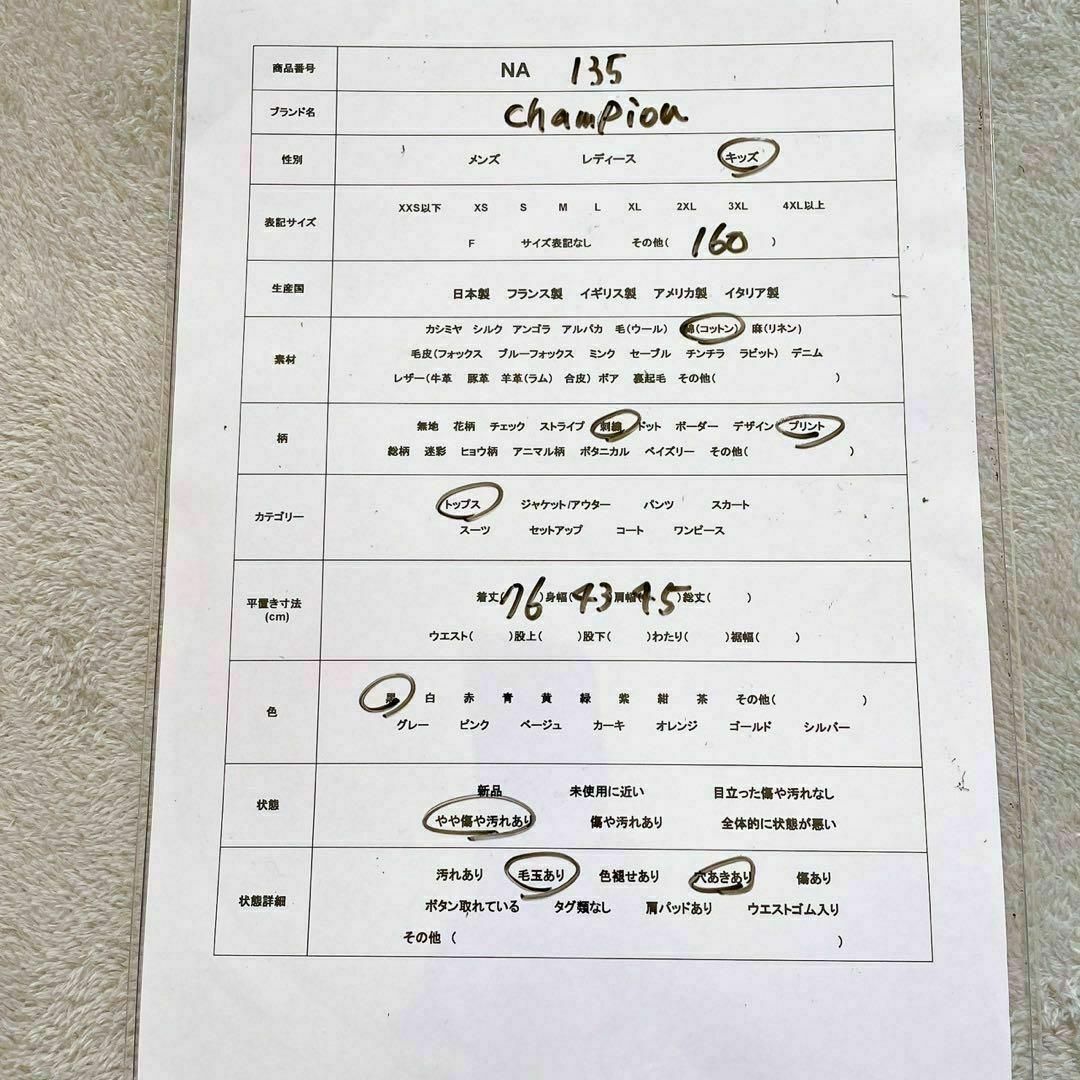 商品番号 NA 135
ブランド名 champion
性別 メンズ レディース キッズ
XXS以下 XS S M L XL 2XL 3XL 4XL以上
表記サイズ
F サイズ表記なし その他( 160 )
生産国 日本製 フランス製 イギリス製 アメリカ製 イタリア製
カシミヤ シルク アンゴラ アルパカ 毛(ウール) 綿(コットン) 麻(リネン)
素材 毛皮(フォックス ブルーフォックス ミンク セーブル チンチラ ラビット) デニム
レザー(牛革 豚革 羊革(ラム) 合皮) ボア 裏起毛 その他( )
無地 花柄 チェック ストライプ 刺繍 ドット ボーダー デザイン プリント
柄
総柄 迷彩 ヒョウ柄 アニマル柄 ボタニカル ペイズリー その他( )
トップス ジャケット/アウター パンツ スカート
カテゴリー
スーツ セットアップ コート ワンピース
平置き寸法 着丈( 76 )身幅( 43 )肩幅( 45 )総丈( )
(cm)
ウエスト( )股上( )股下( )わたり( )裾幅( )
黒 白 赤 青 黄 緑 紫 紺 茶 その他( )
色
グレー ピンク ベージュ カーキ オレンジ ゴールド シルバー
新品 未使用に近い 目立った傷や汚れなし
状態
やや傷や汚れあり 傷や汚れあり 全体的に状態が悪い
汚れあり 毛玉あり 色褪せあり 穴あきあり 傷あり
状態詳細 ボタン取れている タグ類なし 肩パッドあり ウエストゴム入り
その他 ( )